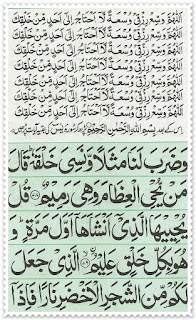 اَللّٰهُمَّ وَسِّعْ رِزْقِیْ وُسْعَةً لَّا اَحْتَاجُ اِلٰی اَحَدٍ مِّنْ خَلْقِكَ
اَللّٰهُمَّ وَسِّعْ رِزْقِیْ وُسْعَةً لَّا اَحْتَاجُ اِلٰی اَحَدٍ مِّنْ خَلْقِكَ
اَللّٰهُمَّ وَسِّعْ رِزْقِیْ وُسْعَةً لَّا اَحْتَاجُ اِلٰی اَحَدٍ مِّنْ خَلْقِكَ
اَللّٰهُمَّ وَسِّعْ رِزْقِیْ وُسْعَةً لَّا اَحْتَاجُ اِلٰی اَحَدٍ مِّنْ خَلْقِكَ
اَللّٰهُمَّ وَسِّعْ رِزْقِیْ وُسْعَةً لَّا اَحْتَاجُ اِلٰی اَحَدٍ مِّنْ خَلْقِكَ
اَللّٰهُمَّ وَسِّعْ رِزْقِیْ وُسْعَةً لَّا اَحْتَاجُ اِلٰی اَحَدٍ مِّنْ خَلْقِكَ
اَللّٰهُمَّ وَسِّعْ رِزْقِیْ وُسْعَةً لَّا اَحْتَاجُ اِلٰی اَحَدٍ مِّنْ خَلْقِكَ
اس کے بعد بِسْمِ اللّٰهِ الرَّحْمٰنِ الرَّحِیْمِ
وَضَرَبَ لَنَا مَثَلًا وَّنَسِیَ خَلْقَهٗ ؕ قَالَ
مَنْ یُّحْیِ الْعِظَامَ وَهِیَ رَمِیْمٌ ﴿۷۸﴾ قُلْ
یُحْیِیْهَا الَّذِیْۤ اَنْشَاَهَاۤ اَوَّلَ مَرَّةٍ ؕ وَ
هُوَ بِكُلِّ خَلْقٍ عَلِیْمُ ﴿۷۹﴾ الَّذِیْ جَعَلَ
لَكُمْ مِّنَ الشَّجَرِ الْاَخْضَرِ نَارًا فَاِذَاۤ